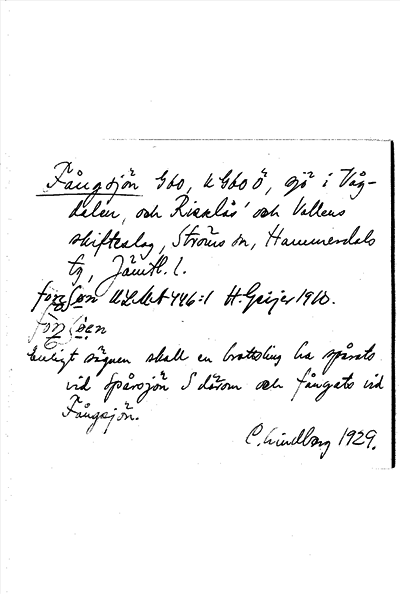 Fångsjön Gbo, UGboÖ, sjö i Våg-
dalen, och Risselås' och Vallens
skifteslag, Ströms sn, Hammerdals
tg, Jämtl. l.
ULMA 446:1 H. Geijer 1910.
Enligt sägnen skall en brottsling ha spårats
vid Spårsjön S därom och fångats vid
Fångsjön.
C. Lindberg 1929.